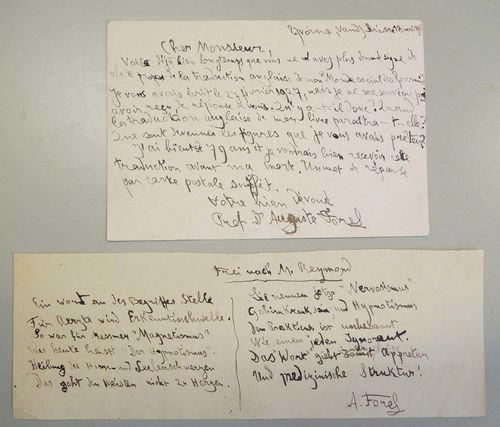 Yvorne (Vaud) Suisse 18 mai
Cher Monsieur,
Voilà déjà bien longtemps que vous ne m'avez plus donné signe de
vie à propos de la traduction anglaise de mon Monde social des fourmis
Je vous avais écrit le 27 février 1927, mais je ne me souviens pas
avoir reçu de réponse de vous. Qu'y a-t-il donc? Quand
la traduction anglaise de mon livre paraîtra-t-elle?
Que sont devenues les figures que je vous avais prêtées?
J'ai bientôt 79 ans et je voudrais bien recevoir cette
traduction avant ma mort. Un mot de réponse
par carte postale suffit.
Votre bien dévoué
Prof. Dr Auguste Forel
Frei nach M. Reymond
Ein Wort an des Begriffes Stelle
Für Aerzte wird Erkenntnisschwelle.
So war für Messmer "Magnetismus"
Was heute heisst "Der Hypnotismus".
Heilung zu Hirn und Seelenschmerzen
Das geht den Meisten nicht zu Herzen.
Sie nennen jetzt "Nervosismus"
Gehirnkrankheit und Hypnotismus
Den Praktikus ist unbekannt
Wie einem jeden Ignorant.
Das Wort giebt Appretur
Und medizinische Struktur!
A. Forel